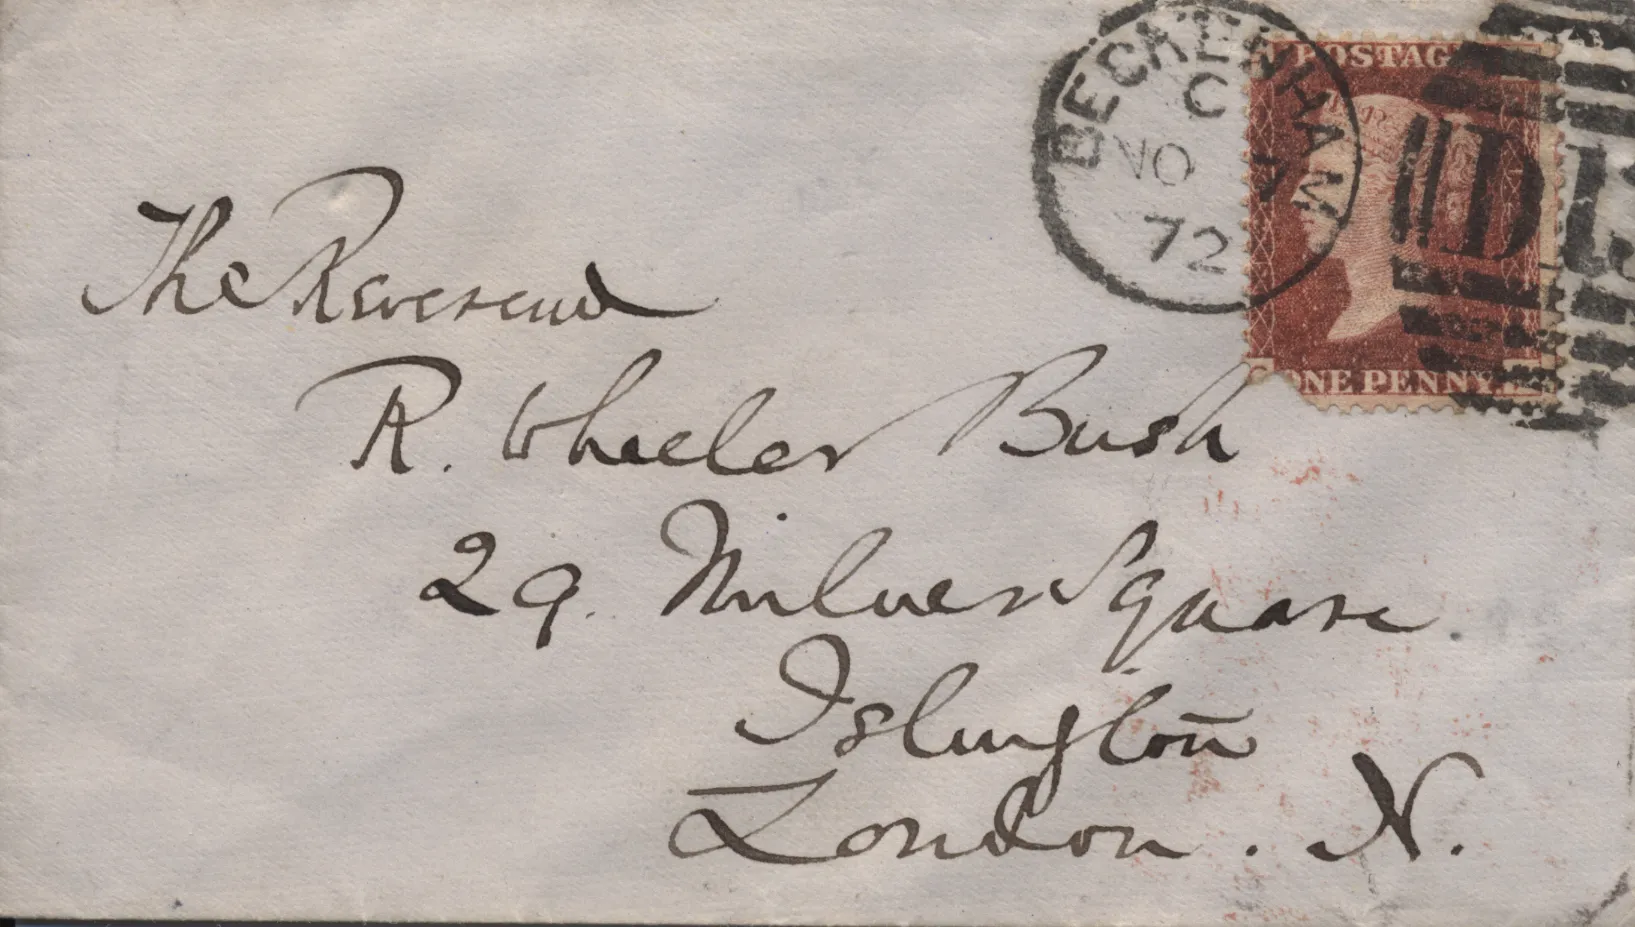 BECKENHAM
C
NO
72
POSTAG
ONE PENNY.
The Reverend
R. Wheeler Bush
29. Milner Square
Islington
London. N.